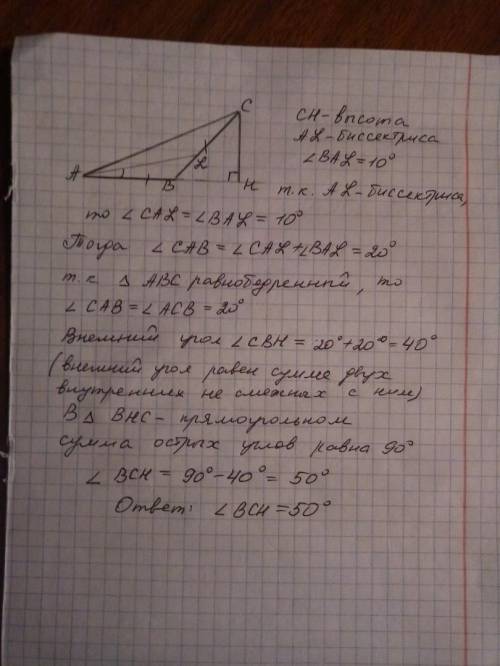 C
CH - высота
AL - биссектриса
∠BAL = 10°
A
L
B
H
т.к. AL - биссектриса,
то ∠CAL = ∠BAL = 10°
Тогда ∠CAB = ∠CAL + ∠BAL = 20°
т.к △ ABC равнобедренный, то
∠CAB = ∠ACB = 20°
Внешний угол ∠CBH = 20° + 20° = 40°
(внешний угол равен сумме двух
внутренних не смежных с ним)
В △ BHC - прямоугольном
сумма острых углов равна 90°
∠ BCH = 90° - 40° = 50°
Ответ: ∠BCH = 50°